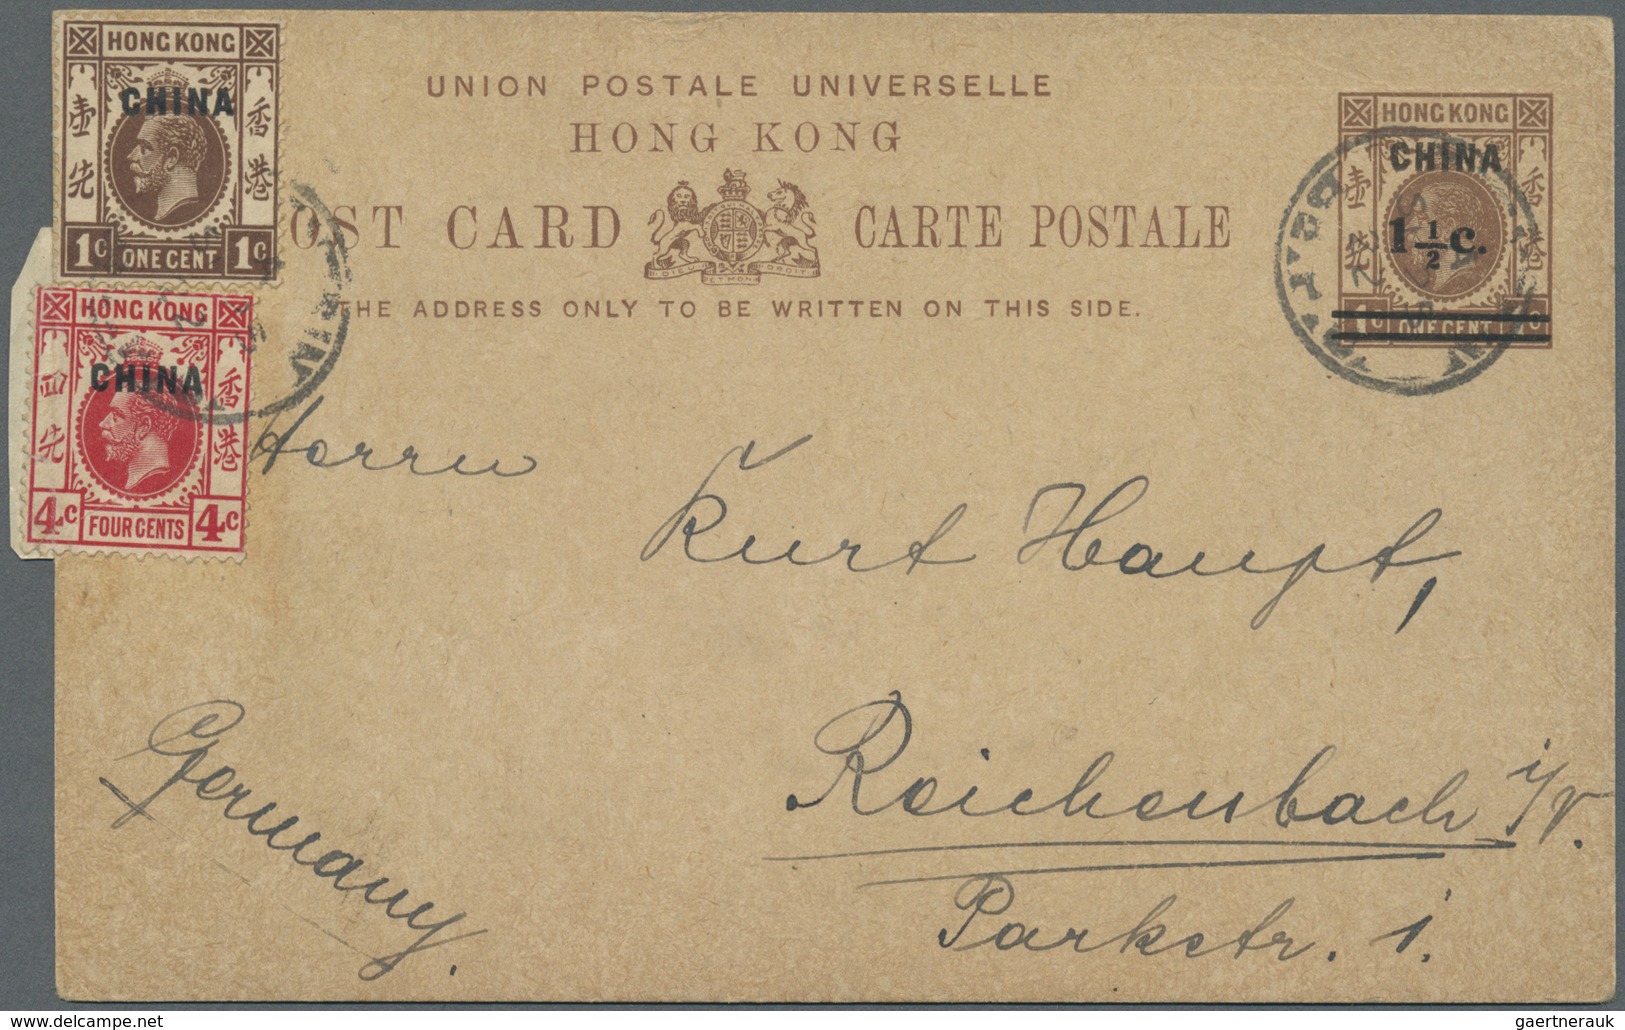 HONG KONG
CHINA
壹先
香港
1c ONE CENT 1c
HONG KONG
CHINA
四先
香港
4c FOUR CENTS 4c
UNION POSTALE UNIVERSELLE
HONG KONG
OST CARD CARTE POSTALE
THE ADDRESS ONLY TO BE WRITTEN ON THIS SIDE.
HONG KONG
CHINA
壹先
香港
1½c.
1c ONE CENT 1c
Herrn
Kurt Haupt,
Reichenbach i/V.
Parkstr. 1.
Germany.
© delcampe.net
gaertnerauk